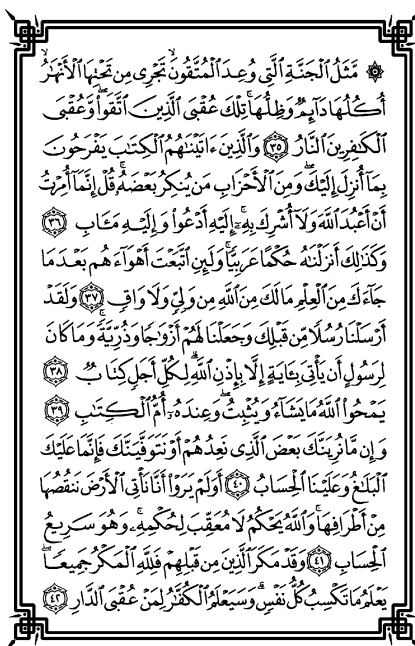 ۞ مَّثَلُ ٱلْجَنَّةِ ٱلَّتِى وُعِدَ ٱلْمُتَّقُونَ ۖ تَجْرِى مِن تَحْتِهَا ٱلْأَنْهَٰرُ ۖ
أُكُلُهَا دَآئِمٌ وَظِلُّهَا ۚ تِلْكَ عُقْبَى ٱلَّذِينَ ٱتَّقَوا۟ ۖ وَّعُقْبَى
ٱلْكَٰفِرِينَ ٱلنَّارُ ٣٥ وَٱلَّذِينَ ءَاتَيْنَٰهُمُ ٱلْكِتَٰبَ يَفْرَحُونَ
بِمَآ أُنزِلَ إِلَيْكَ ۖ وَمِنَ ٱلْأَحْزَابِ مَن يُنكِرُ بَعْضَهُۥ ۚ قُلْ إِنَّمَآ أُمِرْتُ
أَنْ أَعْبُدَ ٱللَّهَ وَلَآ أُشْرِكَ بِهِۦٓ ۚ إِلَيْهِ أَدْعُوا۟ وَإِلَيْهِ مَـَٔابِ ٣٦
وَكَذَٰلِكَ أَنزَلْنَٰهُ حُكْمًا عَرَبِيًّا ۚ وَلَئِنِ ٱتَّبَعْتَ أَهْوَآءَهُم بَعْدَ مَا
جَآءَكَ مِنَ ٱلْعِلْمِ مَا لَكَ مِنَ ٱللَّهِ مِن وَلِىٍّ وَلَا وَاقٍ ٣٧ وَلَقَدْ
أَرْسَلْنَا رُسُلًا مِّن قَبْلِكَ وَجَعَلْنَا لَهُمْ أَزْوَٰجًا وَذُرِّيَّةً ۚ وَمَا كَانَ
لِرَسُولٍ أَن يَأْتِىَ بِـَٔايَةٍ إِلَّا بِإِذْنِ ٱللَّهِ ۗ لِكُلِّ أَجَلٍ كِتَابٌ ٣٨
يَمْحُوا۟ ٱللَّهُ مَا يَشَآءُ وَيُثْبِتُ ۖ وَعِندَهُۥٓ أُمُّ ٱلْكِتَٰبِ ٣٩
وَإِن مَّا نُرِيَنَّكَ بَعْضَ ٱلَّذِى نَعِدُهُمْ أَوْ نَتَوَفَّيَنَّكَ فَإِنَّمَا عَلَيْكَ
ٱلْبَلَٰغُ وَعَلَيْنَا ٱلْحِسَابُ ٤٠ أَوَلَمْ يَرَوْا۟ أَنَّا نَأْتِى ٱلْأَرْضَ نَنقُصُهَا
مِنْ أَطْرَافِهَا ۚ وَٱللَّهُ يَحْكُمُ لَا مُعَقِّبَ لِحُكْمِهِۦ ۚ وَهُوَ سَرِيعُ
ٱلْحِسَابِ ٤١ وَقَدْ مَكَرَ ٱلَّذِينَ مِن قَبْلِهِمْ فَلِلَّهِ ٱلْمَكْرُ جَمِيعًا ۖ
يَعْلَمُ مَا تَكْسِبُ كُلُّ نَفْسٍ ۗ وَسَيَعْلَمُ ٱلْكُفَّٰرُ لِمَنْ عُقْبَى ٱلدَّارِ ٤٢